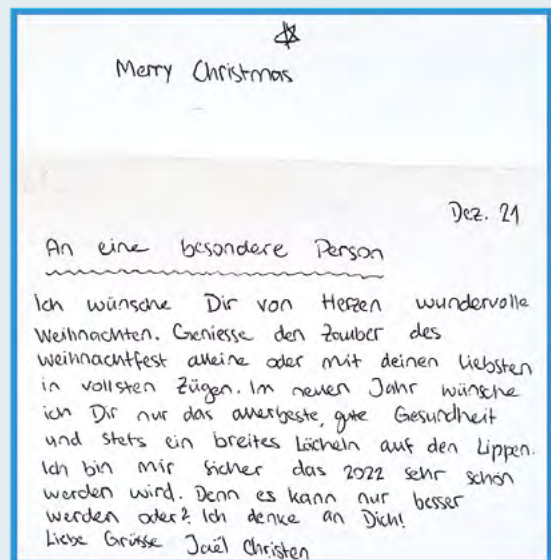 Merry Christmas
Dez. 21
An eine besondere Person
Ich wünsche Dir von Herzen wundervolle
Weihnachten. Geniesse den Zauber des
Weihnachtfest alleine oder mit deinen liebsten
in vollsten Zügen. Im neuen Jahr wünsche
ich Dir nur das allerbeste, gute Gesundheit
und stets ein breites Lächeln auf den Lippen.
Ich bin mir sicher das 2022 sehr schön
werden wird. Denn es kann nur besser
werden oder? Ich denke an Dich!
Liebe Grüsse Jaël Christen